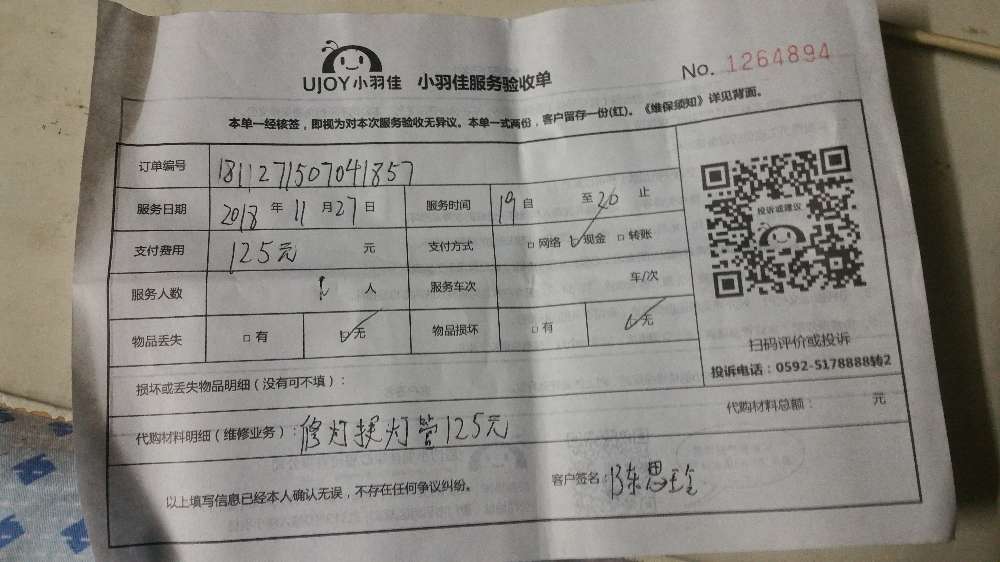 UJOY小羽佳 小羽佳服务验收单 No. 1264894
本单一经核签，即视为对本次服务验收无异议。本单一式两份，客户留存一份(红)。《维保须知》详见背面。
订单编号 1811271507041857
服务日期 2018 年 11 月 27 日 服务时间 19 自 至 20 止
支付费用 125元 元 支付方式 □网络 ☑现金 □转账
服务人数 1 人 服务车次 车/次
物品丢失 □有 ☑无 物品损坏 □有 ☑无
投诉或建议
扫码评价或投诉
投诉电话：0592-5178888转2
损坏或丢失物品明细（没有可不填）：
代购材料明细（维修业务）：修灯换灯管125元 代购材料总额： 元
以上填写信息已经本人确认无误，不存在任何争议纠纷。 客户签名：陈思